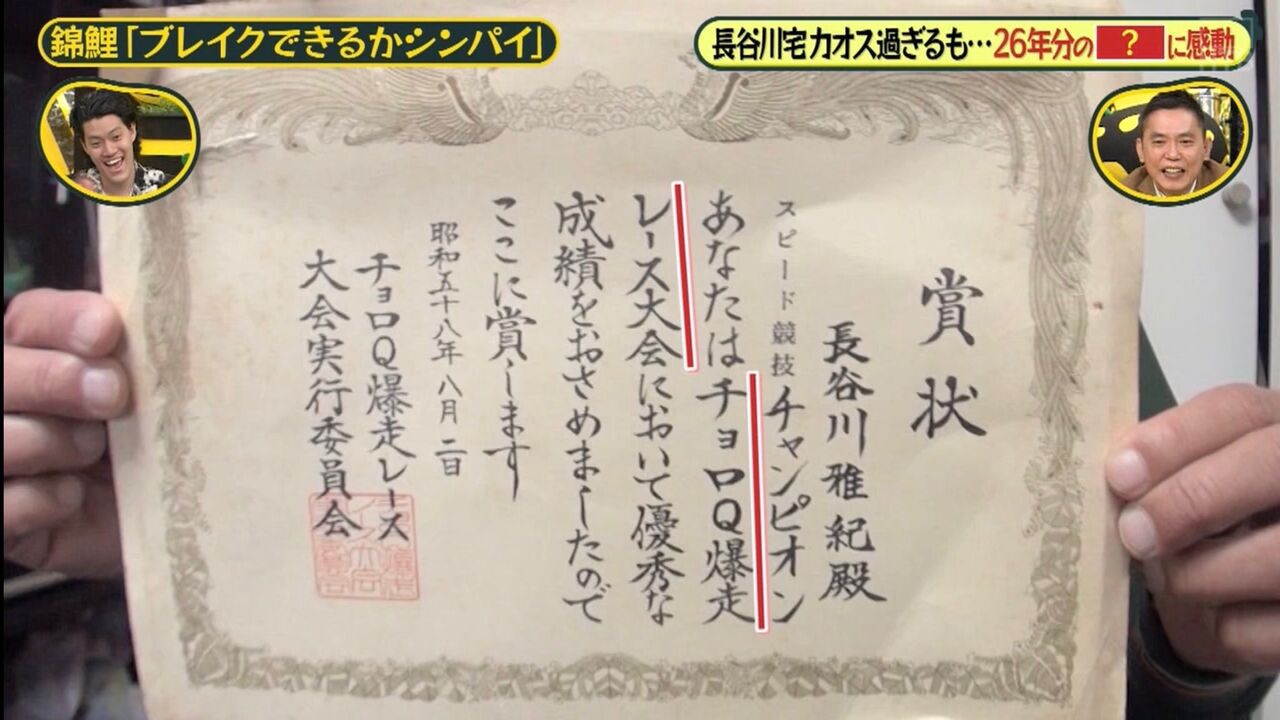 錦鯉「ブレイクできるかシンパイ」
長谷川宅カオス過ぎるも…26年分の?に感動
賞状
長谷川雅紀殿
スピード競技チャンピオン
あなたはチョロQ爆走
レース大会において優秀な
成績をおさめましたので
ここに賞します
昭和五十八年八月二日
チョロQ爆走レース
大会実行委員会